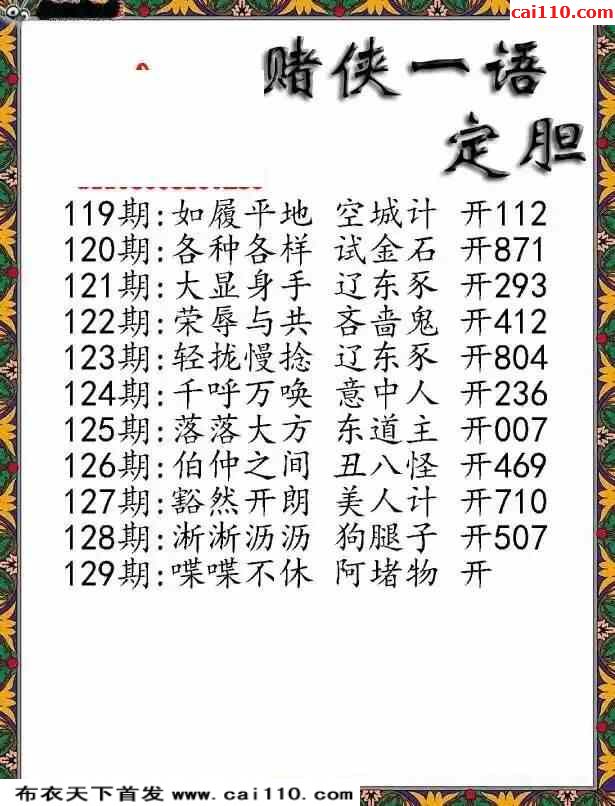 cai110.com
赌侠一语
定胆
119期:如履平地 空城计 开112
120期:各种各样 试金石 开871
121期:大显身手 辽东豕 开293
122期:荣辱与共 吝啬鬼 开412
123期:轻拢慢捻 辽东豕 开804
124期:千呼万唤 意中人 开236
125期:落落大方 东道主 开007
126期:伯仲之间 丑八怪 开469
127期:豁然开朗 美人计 开710
128期:淅淅沥沥 狗腿子 开507
129期:喋喋不休 阿堵物 开
布衣天下首发 www.cai110.com